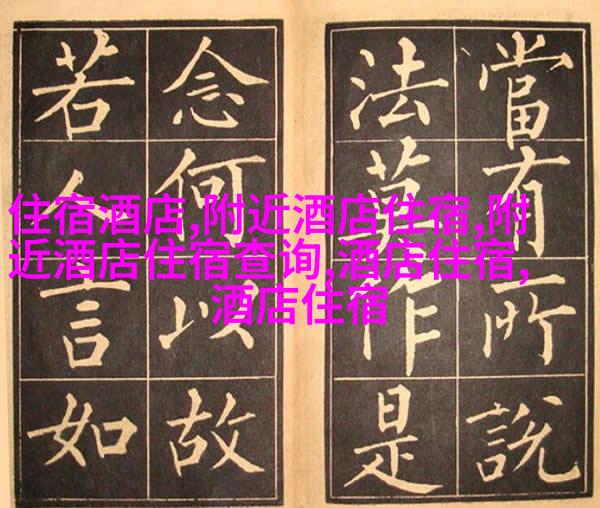 當有所說
法莫作是
念何以故
若人言如
住宿酒店,附近酒店住宿,附
近酒店住宿查询,酒店住宿,
酒店住宿